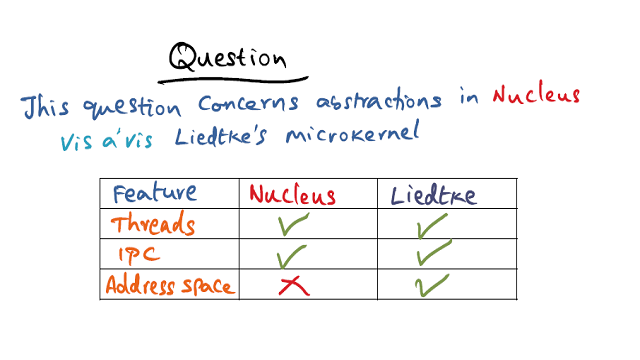 Question
This question concerns abstractions in Nucleus
vis a' vis Liedtke's microkernel
Feature Nucleus Liedtke
Threads ✓ ✓
IPC ✓ ✓
Address space ✗ ✓